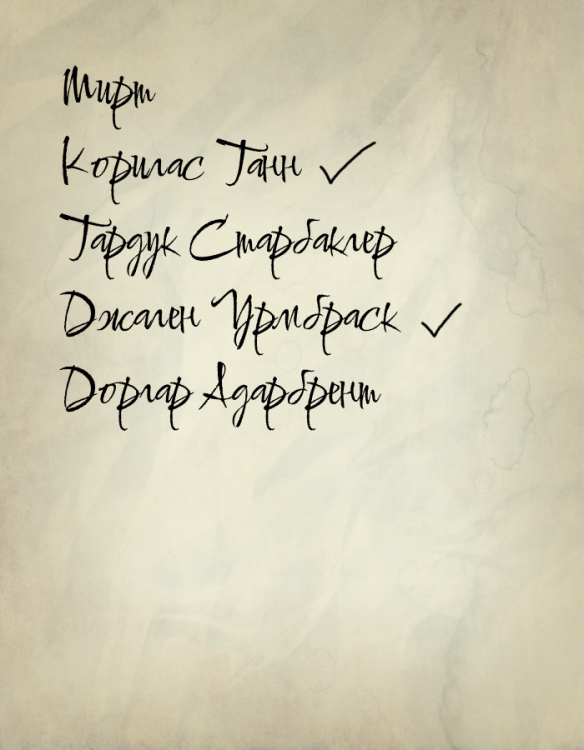 Мирт
Корилас Танн ✓
Тардук Старбаклер
Джален Урмбраск ✓
Дорлар Адарбрент